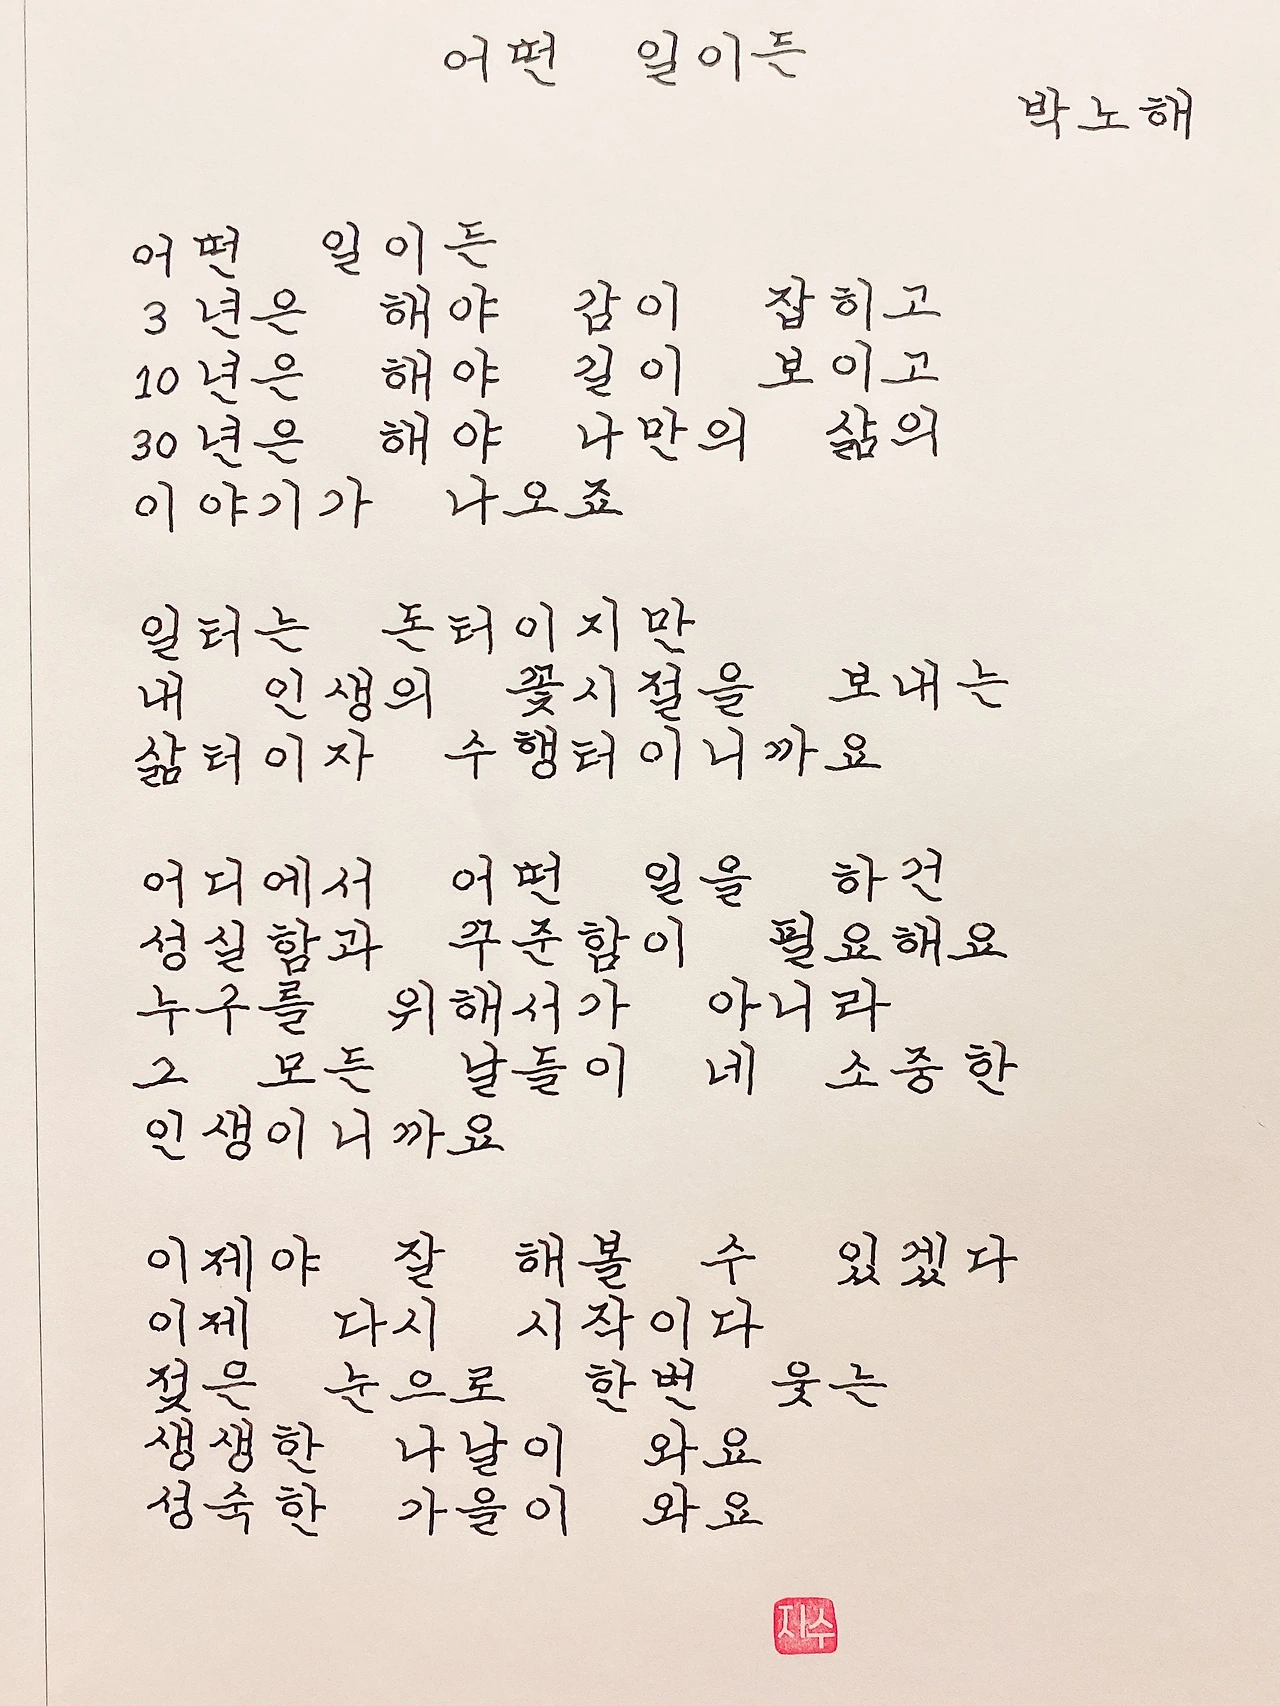 어떤 일이든
박노해
어떤 일이든
3년은 해야 감이 잡히고
10년은 해야 길이 보이고
30년은 해야 나만의 삶의
이야기가 나오죠
일터는 돈터이지만
내 인생의 꽃시절을 보내는
삶터이자 수행터이니까요
어디에서 어떤 일을 하건
성실함과 꾸준함이 필요해요
누구를 위해서가 아니라
그 모든 날들이 네 소중한
인생이니까요
이제야 잘 해볼 수 있겠다
이제 다시 시작이다
젖은 눈으로 한번 웃는
생생한 나날이 와요
성숙한 가을이 와요
지수